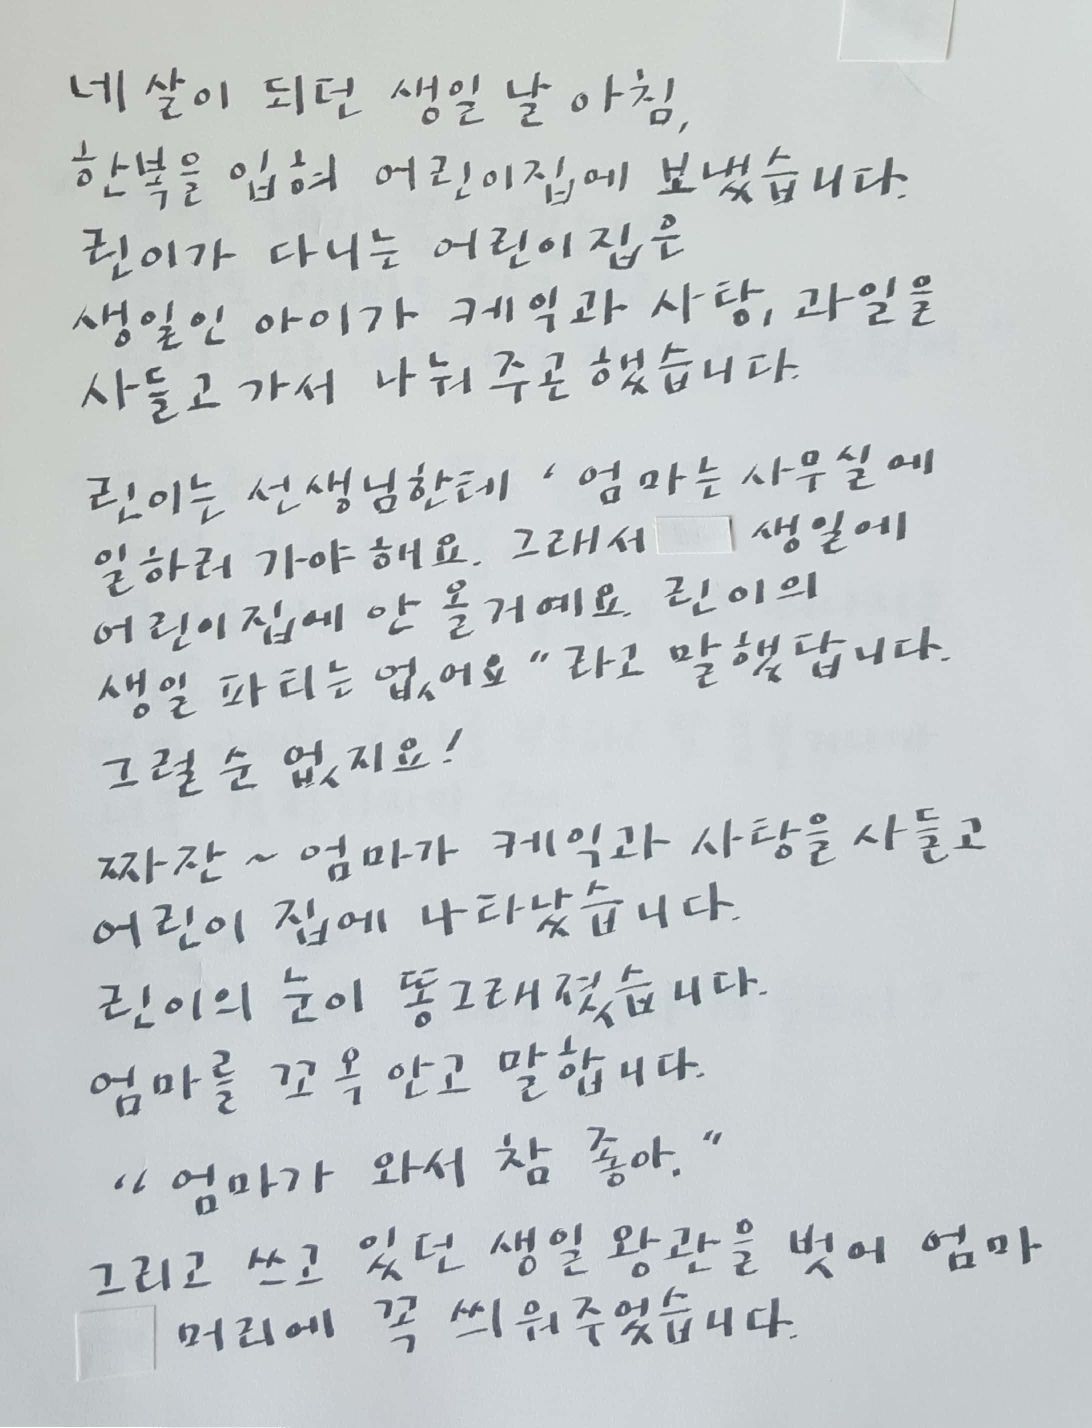 네 살이 되던 생일 날 아침,
한복을 입혀 어린이집에 보냈습니다.
린이가 다니는 어린이집은
생일인 아이가 케익과 사탕, 과일을
사들고 가서 나눠 주곤 했습니다.
린이는 선생님한테 ‘ 엄마는 사무실에
일하러 가야 해요. 그래서 생일에
어린이집에 안 올거예요. 린이의
생일 파티는 없어요 " 라고 말했답니다.
그럴 순 없지요!
짜잔 ~ 엄마가 케익과 사탕을 사들고
어린이 집에 나타났습니다.
린이의 눈이 똥그래졌습니다.
엄마를 꼬옥 안고 말합니다.
“ 엄마가 와서 참 좋아. "
그리고 쓰고 있던 생일 왕관을 벗어 엄마
머리에 꼭 씌워주었습니다.